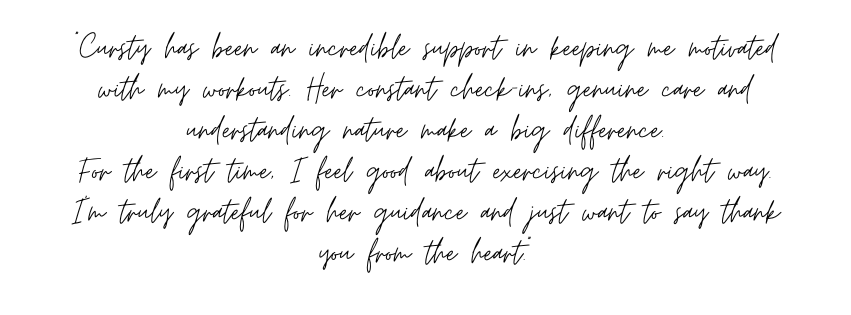 "Cursty has been an incredible support in keeping me motivated
with my workouts. Her constant check-ins, genuine care and
understanding nature make a big difference.
For the first time, I feel good about exercising the right way.
I'm truly grateful for her guidance and just want to say thank
you from the heart."